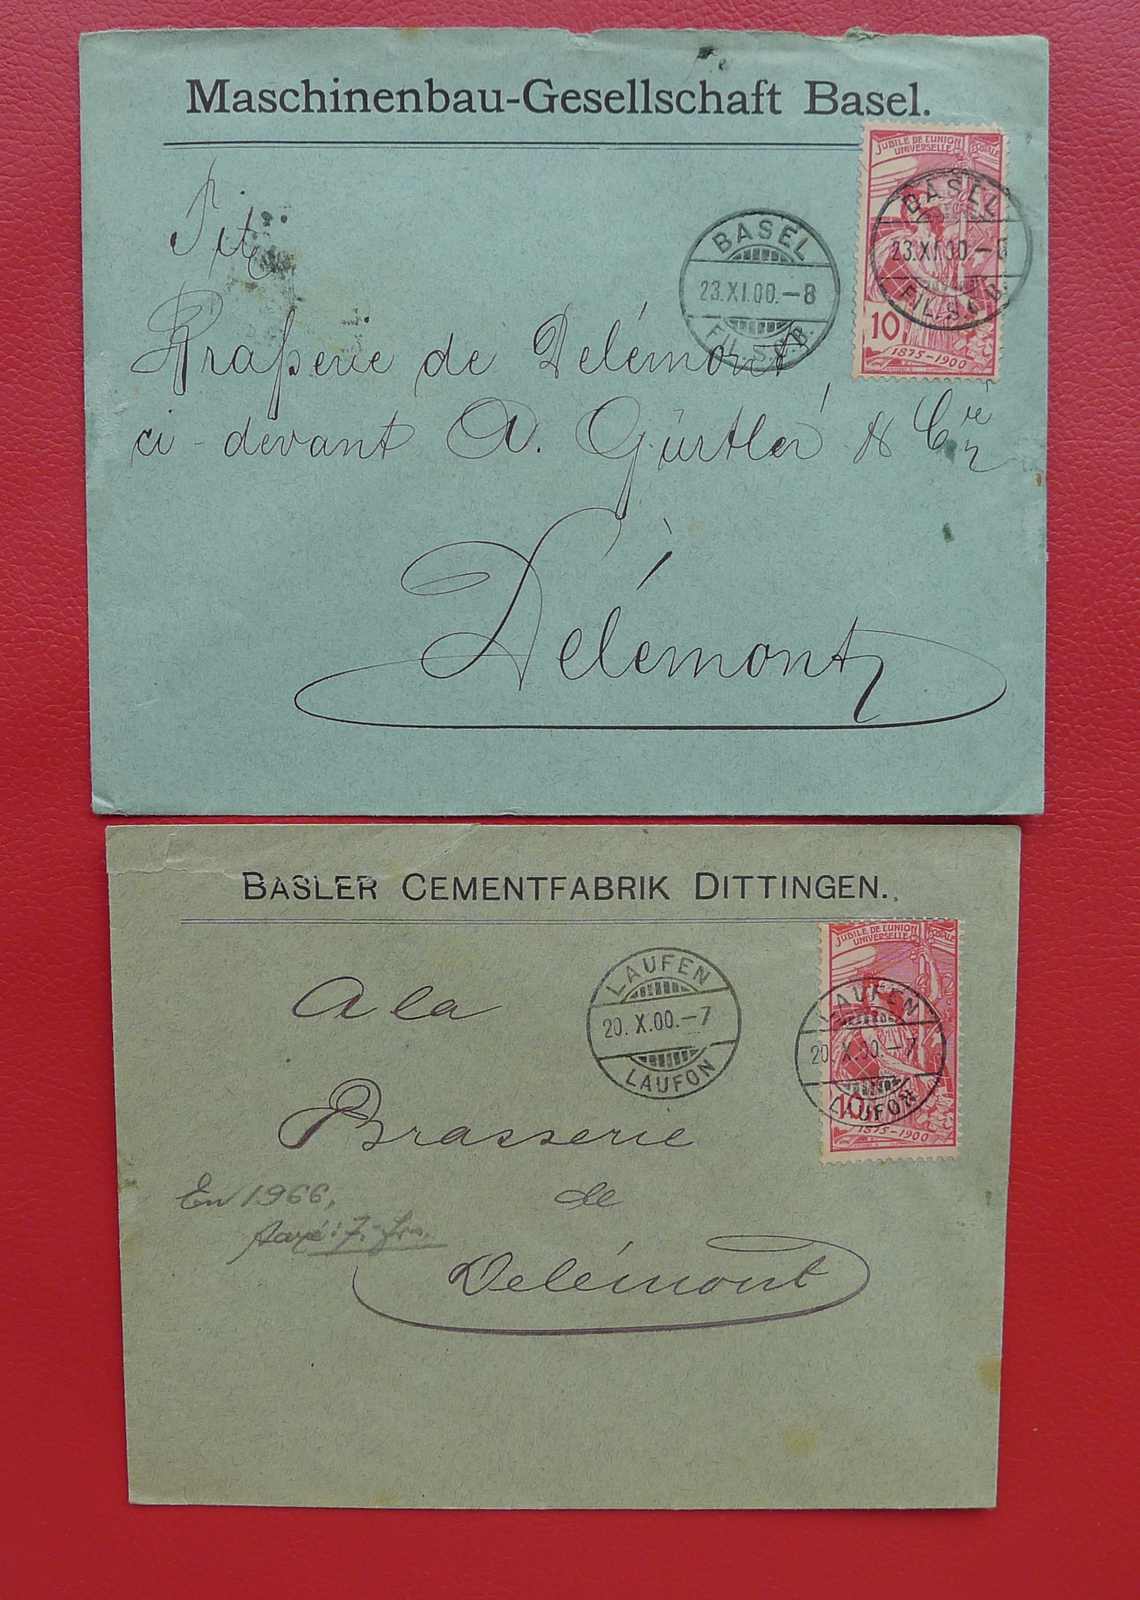 Maschinenbau-Gesellschaft Basel.
JUBILÉ DE L'UNION
UNIVERSELLE
10
1875-1900
BASEL
23.XI.00.-8
FIL.S.C.B.
BASEL
23.XI.00.-8
FIL.S.C.B.
Tit.
Braßerie de Delémont,
ci-devant A. Gürtler & Cie
Delémont
BASLER CEMENTFABRIK DITTINGEN.
JUBILÉ DE L'UNION
UNIVERSELLE
10
1875-1900
LAUFEN
20.X.00.-7
LAUFON
LAUFEN
20.X.00.-7
LAUFON
A la
Brasserie
de
Delémont
En 1966,